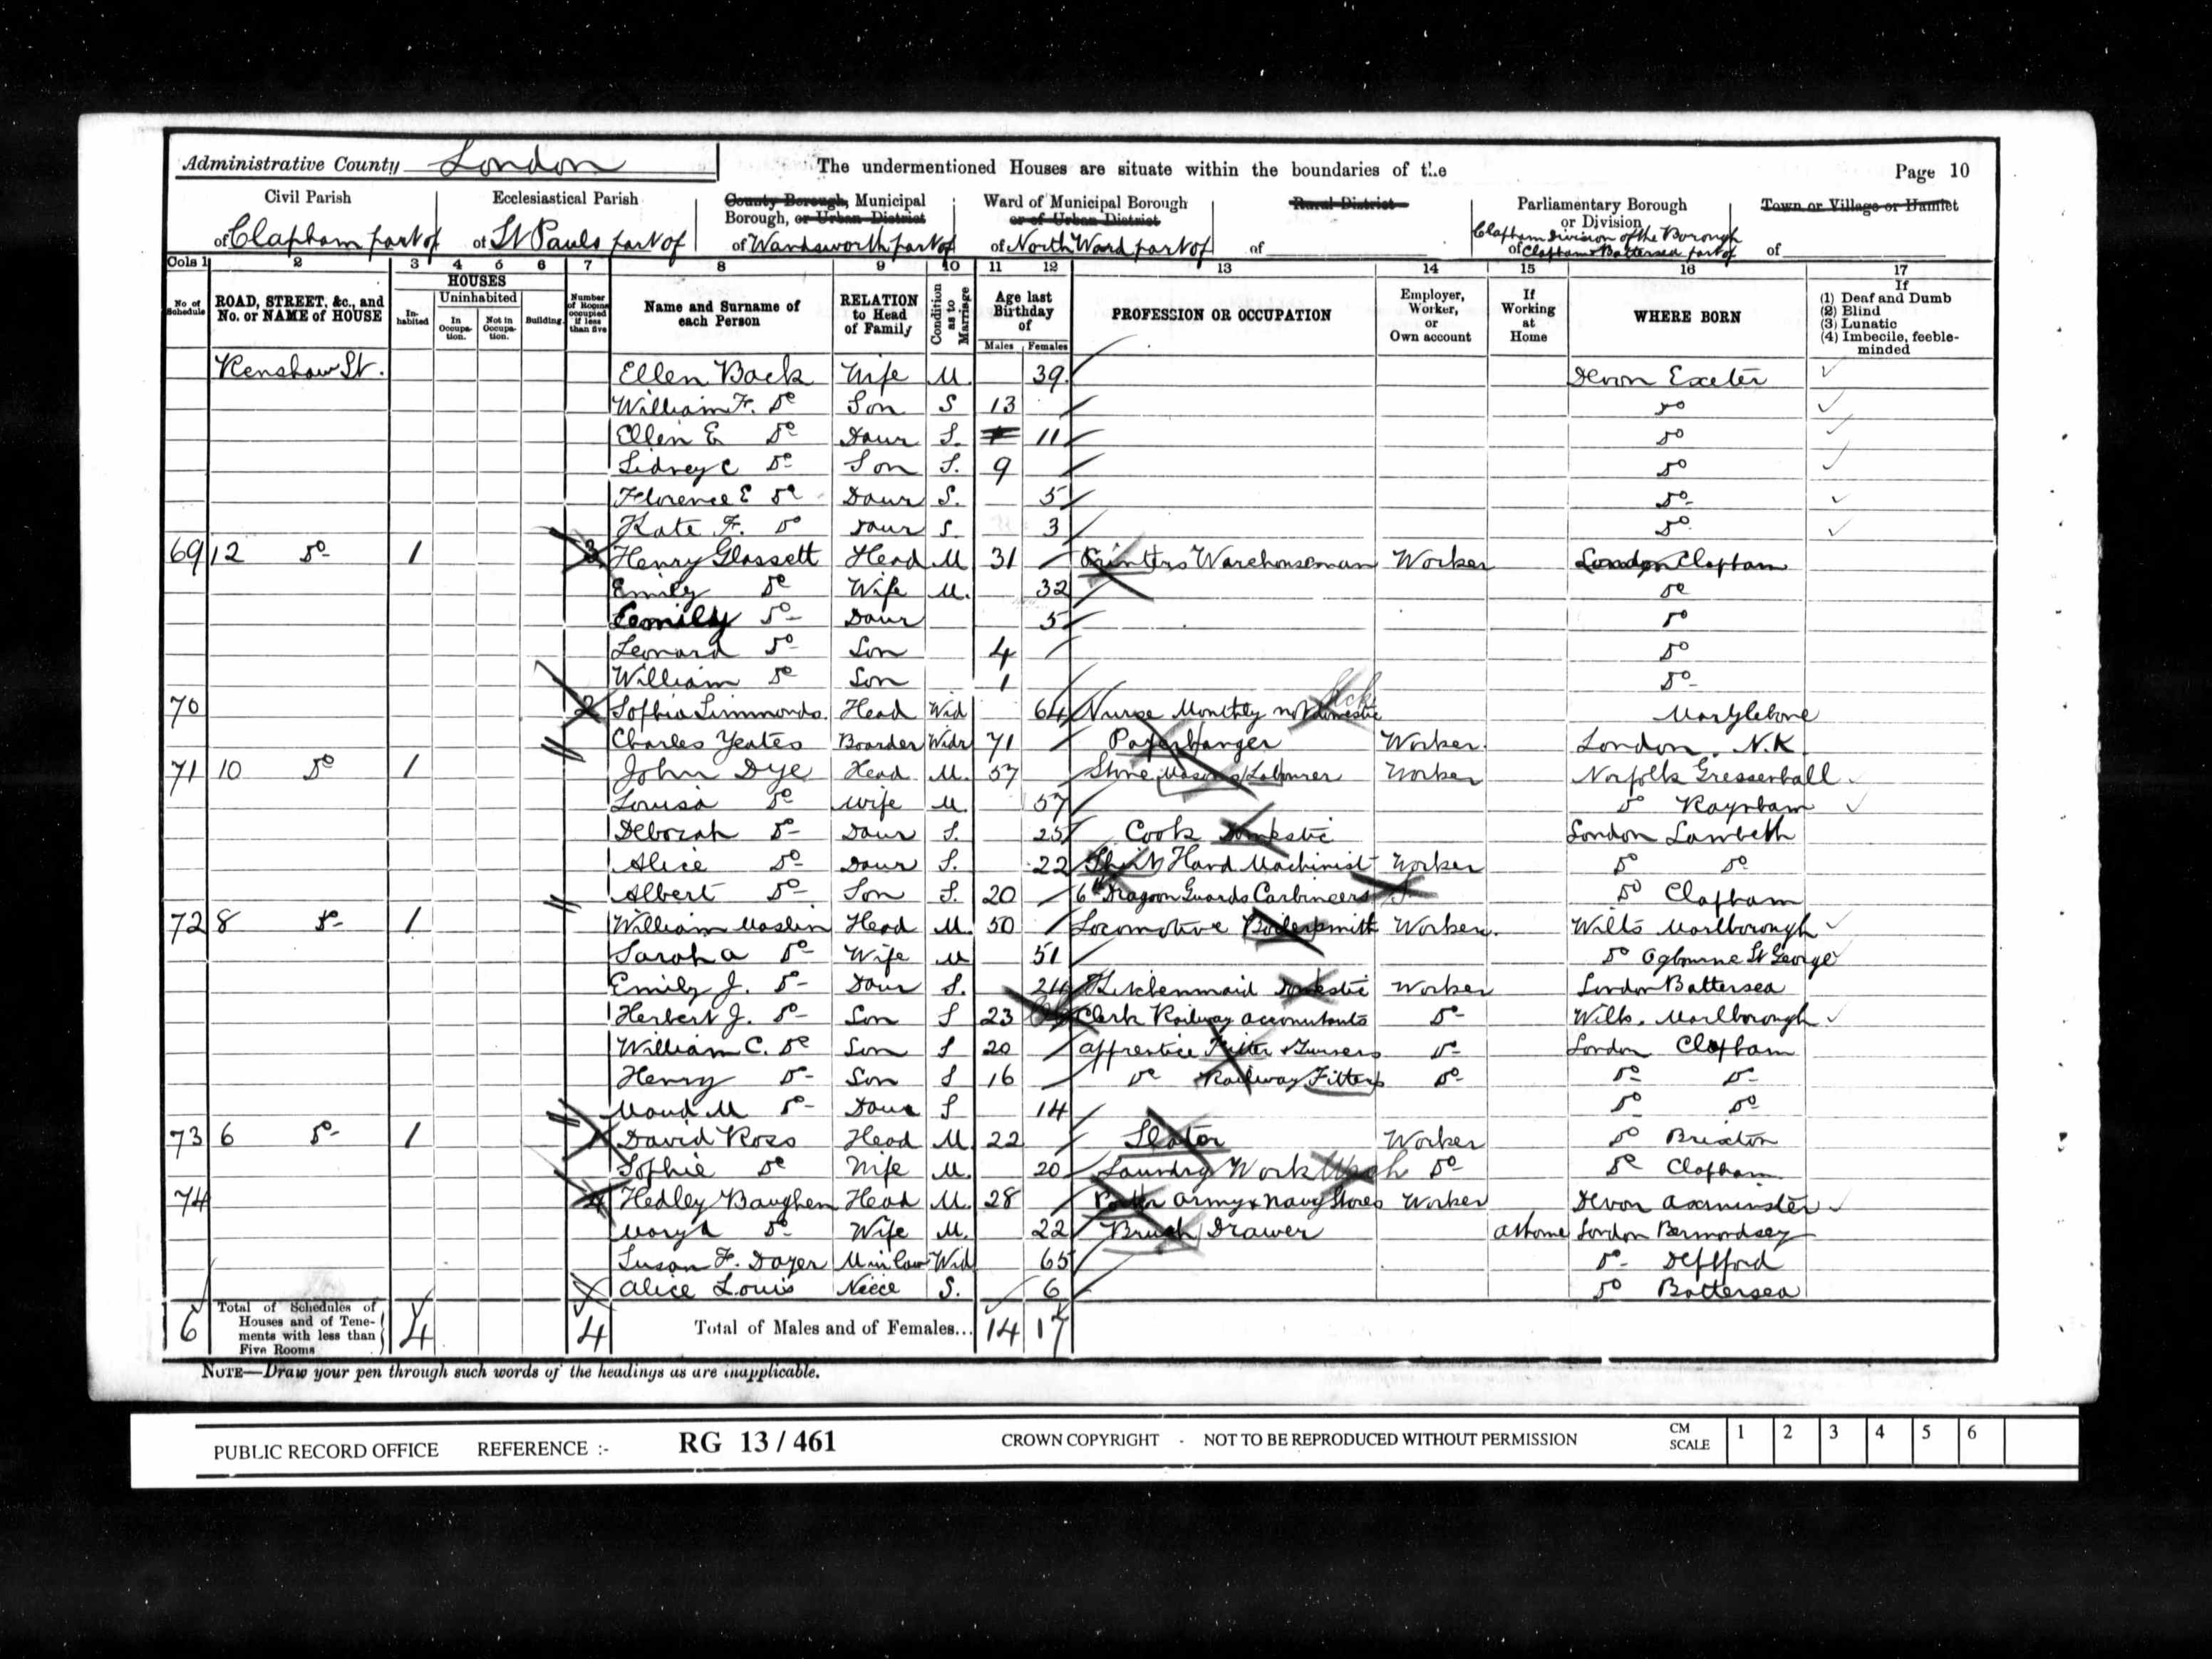 Administrative County London The undermentioned Houses are situate within the boundaries of the Page 10
Civil Parish Ecclesiastical Parish County Borough, Municipal Borough, or Urban District Ward of Municipal Borough or of Urban District Rural District Parliamentary Borough or Division Town or Village or Hamlet
of Clapham part of of St Pauls part of of Wandsworth part of of North Ward part of of Clapham Division of the Borough of Clapham & Battersea part of of
Cols 1 2 3 4 5 6 7 8 9 10 11 12 13 14 15 16 17
No of Schedule ROAD, STREET, &c., and No. or NAME of HOUSE HOUSES Inhabited Uninhabited In Occupation. Not in Occupation. Building Number of Rooms occupied if less than five Name and Surname of each Person RELATION to Head of Family Condition as to Marriage Age last Birthday of Males Females PROFESSION OR OCCUPATION Employer, Worker, or Own account If Working at Home WHERE BORN If (1) Deaf and Dumb (2) Blind (3) Lunatic (4) Imbecile, feeble-minded
Renshaw St. Ellen Back Wife M 39 Devon Exeter
William F. Do Son S 13 Do
Ellen E Do Daur S. 11 Do
Sidney C Do Son S. 9 Do
Florence E Do Daur S. 5 Do
Kate F. Do Daur S. 3 Do
69 12 Do 1 3 Henry Glassett Head M 31 Printers Warehouseman Worker London Clapham
Emily Do Wife M. 32 Do
Emily Do Daur 5 Do
Leonard Do Son 4 Do
William Do Son 1 Do
70 2 Sophia Simmonds. Head Wid 64 Nurse Monthly not domestic Sick Marylebone
Charles Yeates Boarder Widr 71 Paperhanger Worker. London. N.K.
71 10 Do 1 John Dye Head M. 57 Stone Masons Labourer Worker Norfolk Gressenhall
Louisa Do Wife M. 57 Do Raynham
Deborah Do Daur S. 25 Cook Domestic London Lambeth
Alice Do Daur S. 22 Shirt Hand Machinist Worker Do Do
Albert Do Son S. 20 6th Dragoon Guards Carbineers Do Clapham
72 8 Do 1 William Maslin Head M. 50 Locomotive Boilersmith Worker. Wilts Marlborough
Sarah A Do Wife M 51 Do Ogbourne St George
Emily J. Do Daur S. 24 Kitchenmaid Domestic Worker London Battersea
Herbert J. Do Son S 23 Clerk Railway accountants Do Wilts. Marlborough
William C. Do Son S 20 Apprentice Fitter & Turners Do London Clapham
Henry Do Son S 16 Do Railway Fitters Do Do Do
Maud M Do Daur S 14 Do Do
73 6 Do 1 1 David Ross Head M 22 Slater Worker Do Brixton
Sophie Do Wife M. 20 Laundry Work Wash Do Do Clapham
74 4 Hedley Baughen Head M. 28 Porter Army & Navy Stores Worker Devon Axminster
Mary A Do Wife M. 22 Brush Drawer At home London Bermondsey
Susan F. Dozer M in law Wid 65 Do Deptford
Alice Louis Niece S. 6 Do Battersea
6 Total of Schedules of Houses and of Tenements with less than Five Rooms 4 4 Total of Males and of Females... 14 17
NOTE—Draw your pen through such words of the headings as are inapplicable.
PUBLIC RECORD OFFICE REFERENCE :- RG 13 / 461 CROWN COPYRIGHT - NOT TO BE REPRODUCED WITHOUT PERMISSION CM SCALE 1 2 3 4 5 6